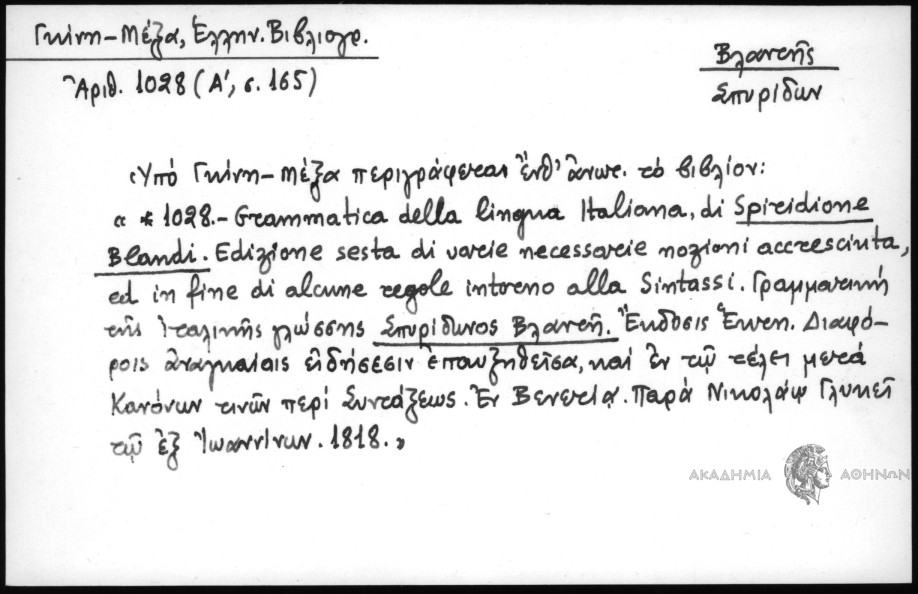 Γκίνη-Μέξα, Ἑλλην. Βιβλιογρ.
Ἀριθ. 1028 (Α', σ. 165)
Βλαντῆς
Σπυρίδων
Ὑπό Γκίνη-Μέξα περιγράφεται ἔνθ' ἄνωτ. τό βιβλίον:
« * 1028.- Grammatica della lingua Italiana, di Spiridione
Blandi. Edizione sesta di varie necessarie nozioni accresciuta,
ed in fine di alcune regole intorno alla Sintassi. Γραμματική
τῆς Ἰταλικῆς γλώσσης Σπυρίδωνος Βλαντῆ. Ἔκδοσις Ἕκτη. Διαφό-
ροις ἀναγκαίαις εἰδήσεσιν ἐπαυξηθεῖσα, καί ἐν τῷ τέλει μετά
Κανόνων τινῶν περί Συντάξεως. Ἐν Βενετίᾳ. Παρά Νικολάῳ Γλυκεῖ
τῷ ἐξ Ἰωαννίνων. 1818.»
ΑΚΑΔΗΜΙΑ ΑΘΗΝΩΝ